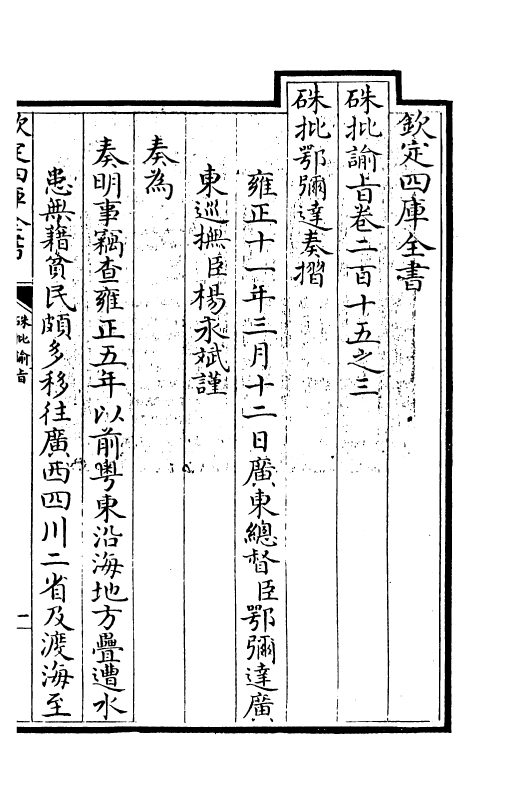 欽定四庫全書
硃批諭旨卷二百十五之三
硃批鄂彌達奏摺
雍正十一年三月十二日廣東總督臣鄂彌達廣
東巡撫臣楊永斌謹
奏為
奏明事竊查雍正五年以前粵東沿海地方疊遭水
患無籍貧民頗多移往廣西四川二省及渡海至
欽定四庫全書
硃批諭旨
一